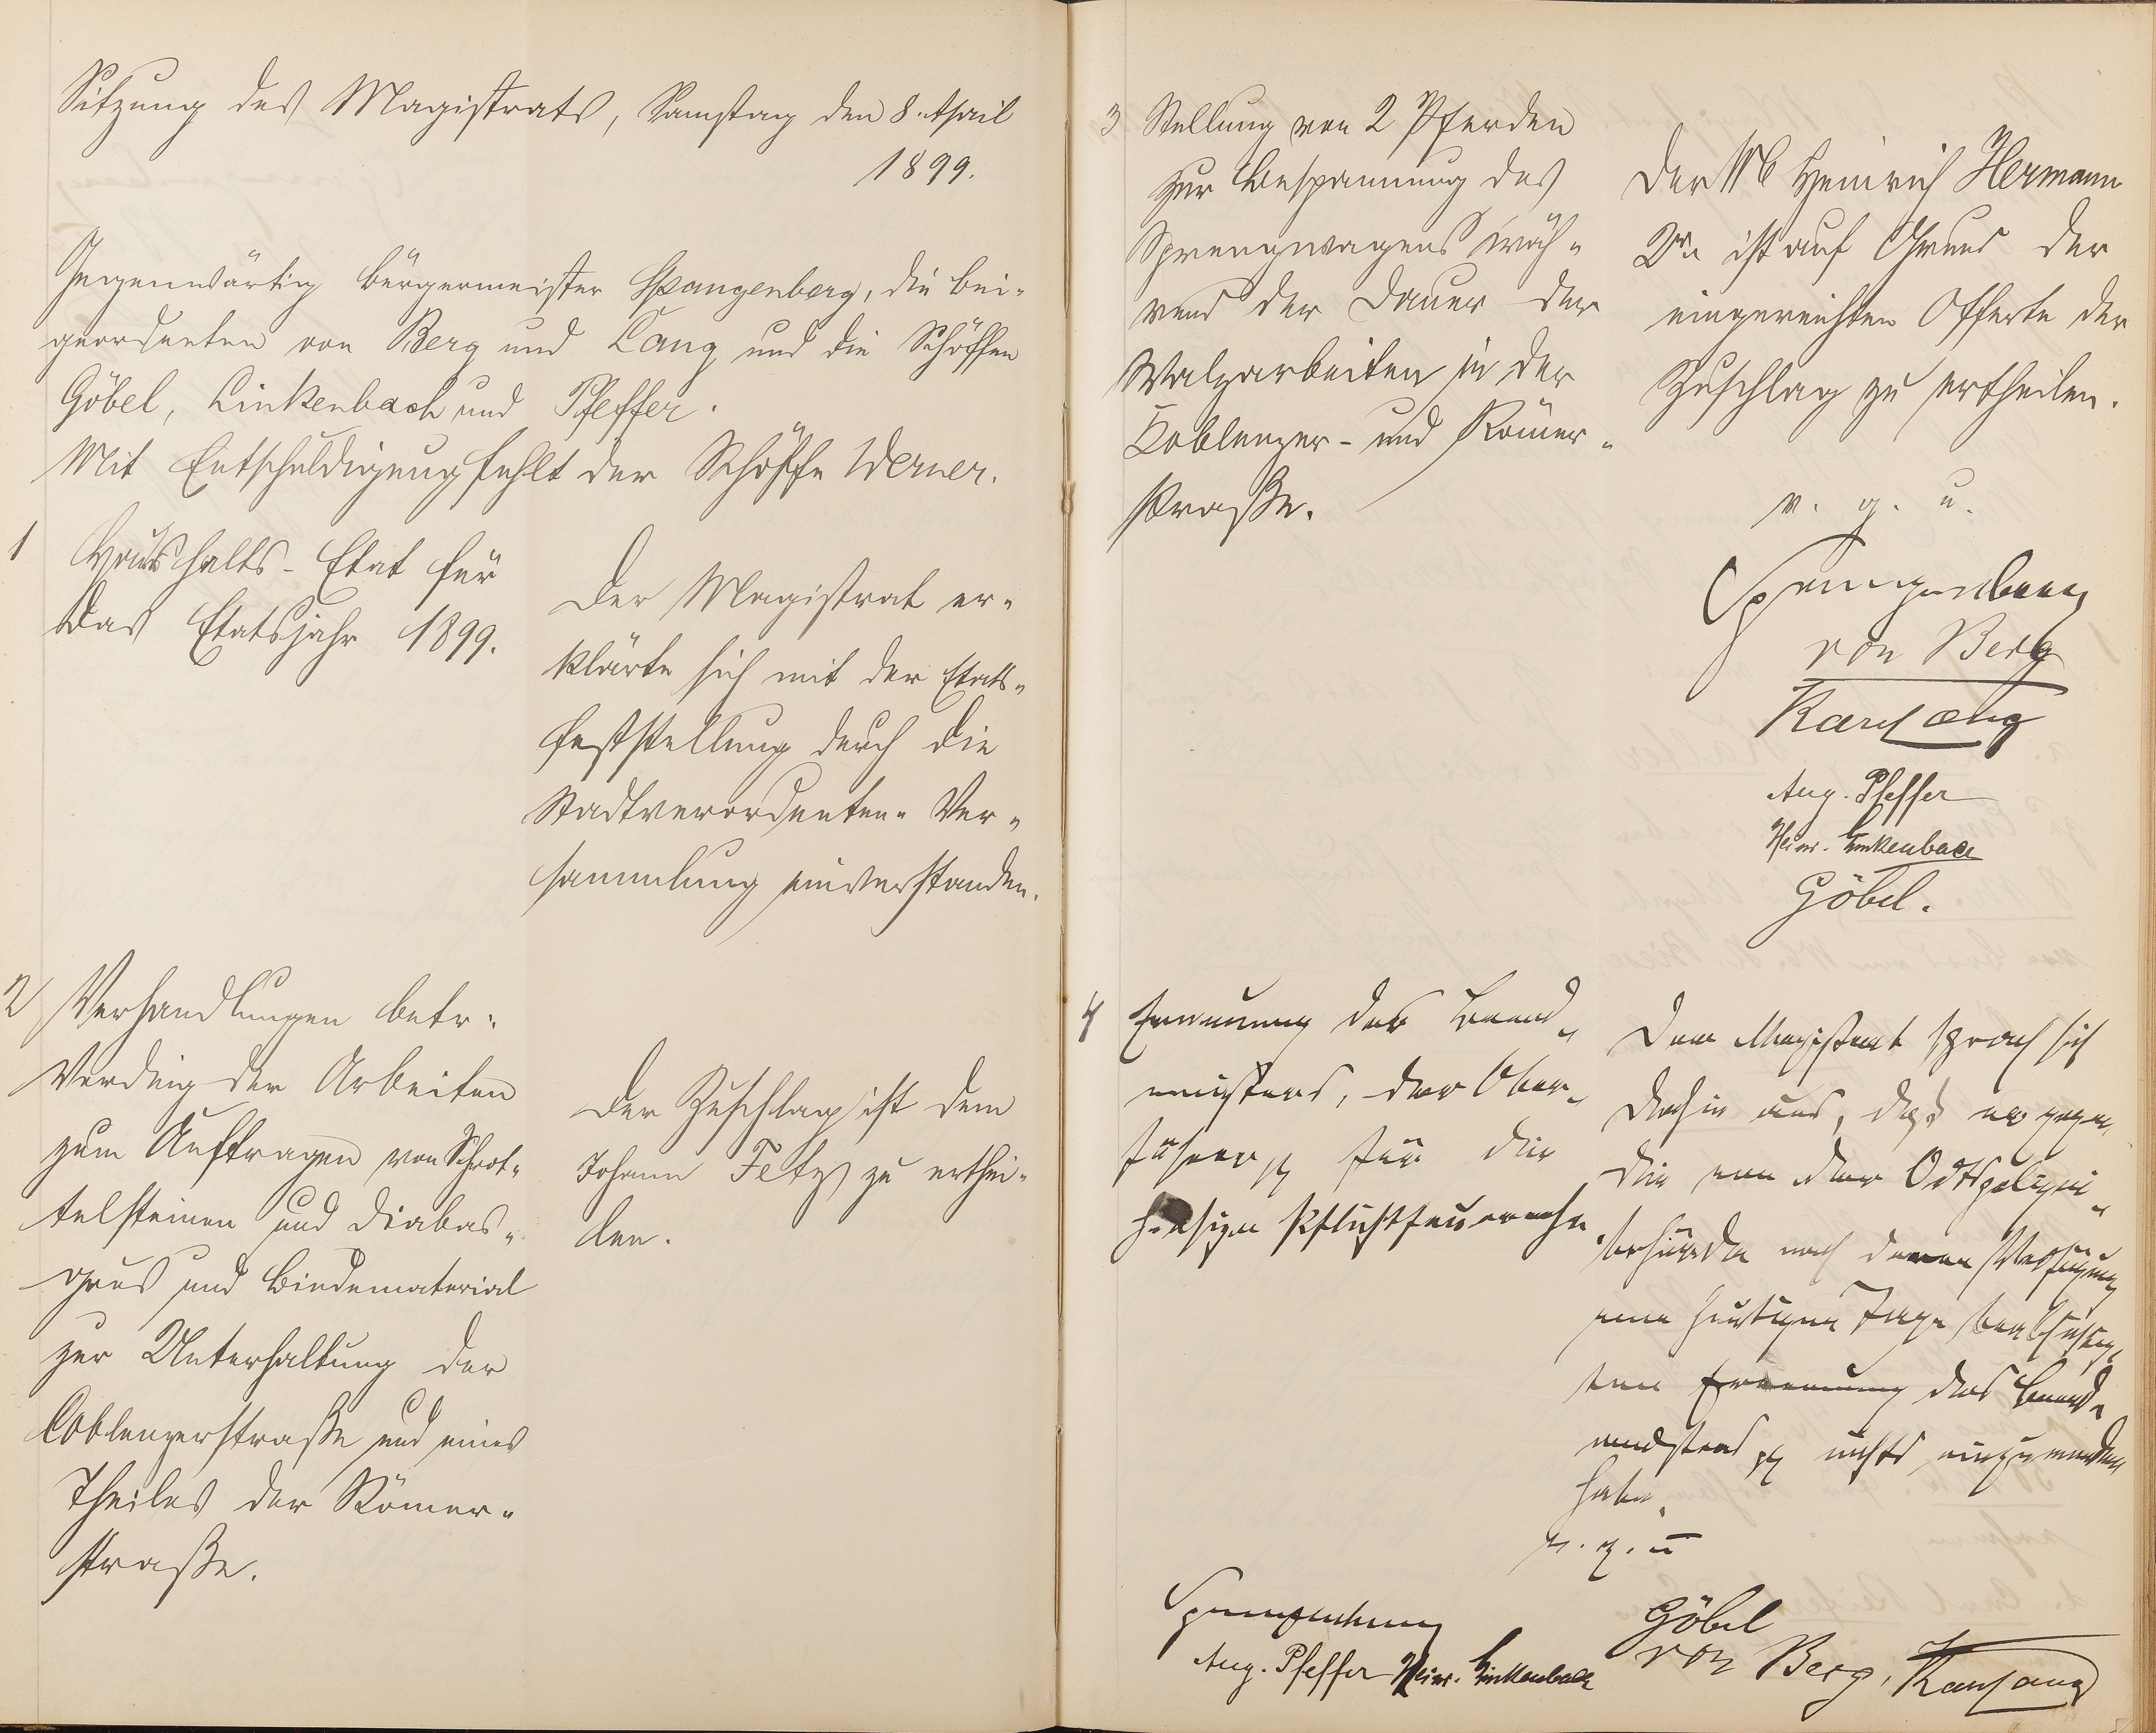 Sitzung des Magistrats, Samstag den 8. April
1899.
Gegenwärtig Bürgermeister Spangenberg, die Bei-
geordneten von Berg und Lang und die Schöffen
Göbel, Linkenbach und Pfeffer.
Mit Entschuldigung fehlt der Schöffe Werner.
1 Haushalts-Etat für
das Etatsjahr 1899.
Der Magistrat er-
klärte sich mit der Etats-
feststellung durch die
Stadtverordneten-Ver-
sammlung einverstanden.
2 Verhandlungen betr:
Verding der Arbeiten
zum Auftragen von Schrot-
telsteinen und Diabas-
grus und Bindematerial
zur Unterhaltung der
Coblenzerstraße und eines
Theiles der Römer-
straße.
Der Zuschlag ist dem
Johann Fetz zu erthei-
len.
3 Stellung von 2 Pferden
zur Bespannung des
Sprengwagens wäh-
rend der Dauer der
Walzarbeiten in der
Coblenzer- und Römer-
straße.
Heinrich Hermann
ist auf Grund der
eingereichten Offerte der
Zuschlag zu ertheilen.
v. g. u.
Spangenberg
von Berg
Karl Lang
Aug. Pfeffer
Heinr. Linkenbach
Göbel.
4 Ernennung des Brand-
meisters, der Ober-
führer pp für die
hiesige Pflichtfeuerwehr.
Der Magistrat sprach sich
dahin aus, daß er gegen
die von der Ortspolizei-
behörde nach deren Verfügung
vom heutigen Tage beabsichtig-
ten Ernennung des Brand-
meisters pp nichts einzuwenden
habe.
v. g. u
Spangenberg
Göbel
Aug. Pfeffer Heinr. Linkenbach
von Berg, Karl Lang